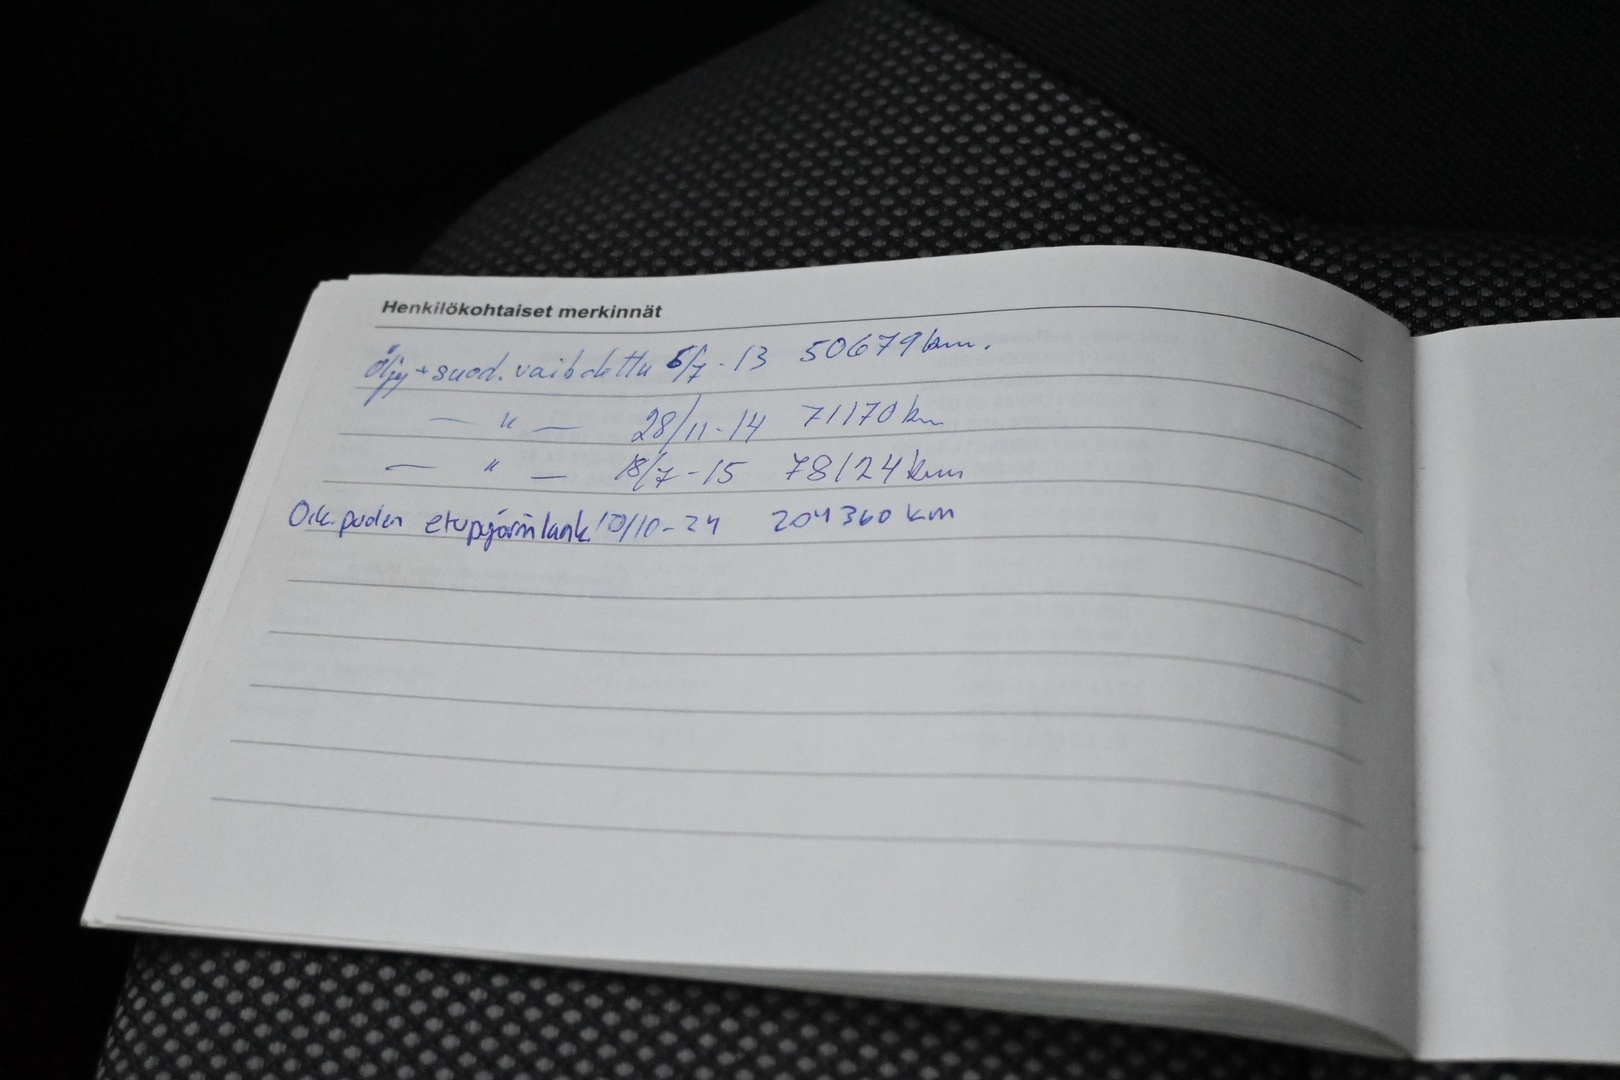 Henkilökohtaiset merkinnät
öljy + suod. vaihdettu 5/7 - 13 50679 km.
— " — 28/11 - 14 71170 km
— " — 18/7 - 15 78124 km
Oik. puolen etupyöränlaak. 10/10 - 24 204360 km